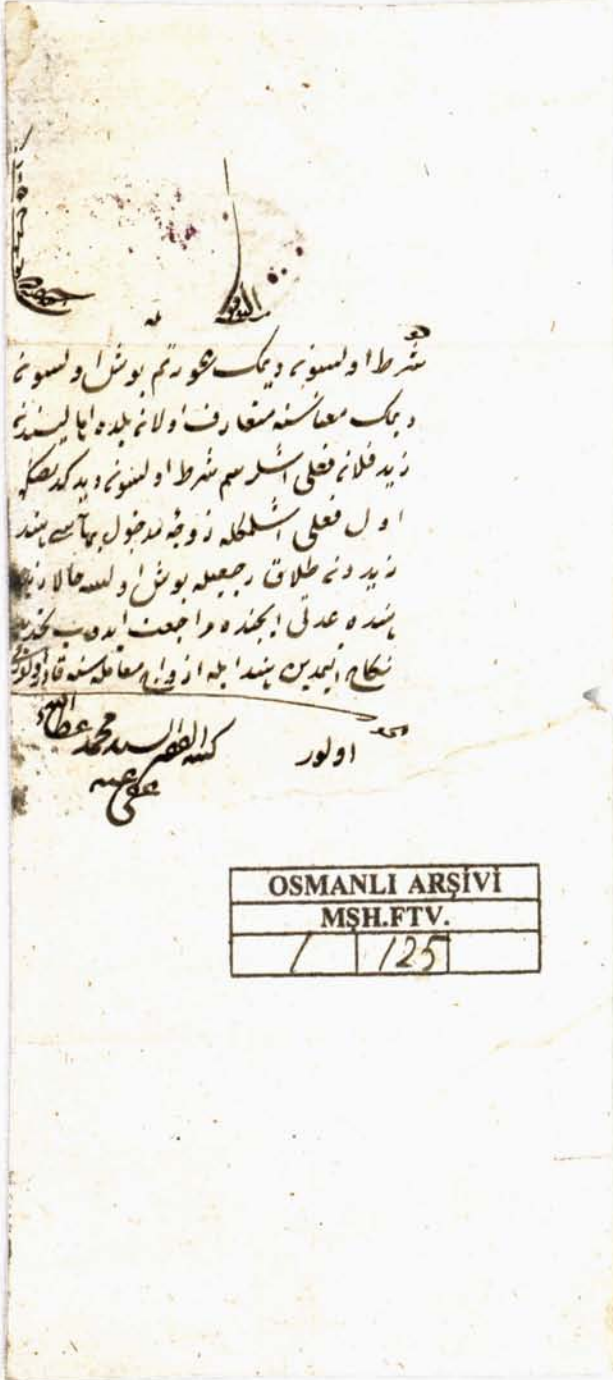 التوفيق
شرط اولسون ديمك عورتم بوش اولسون
ديمك معناسنه متعارف اولان بلده اهاليسندن
زيد فلان فعلى اشلرسم شرط اولسون ديدكدنصكره
اول فعلى اشلمكله زوجۀ مدخول بهاسى هند
زيددن طلاق رجعيله بوش اولسه حالا زيد
هنده عدتى ايچنده مراجعت ايدوب تجديد
نكاح ايتمدين هند ايله ازواج معامله سنه قادر اولورمى
الجواب
اولور
كتبه الفقير السيد محمد عطاءالله
عفى عنه
OSMANLI ARŞİVİ
MŞH.FTV.
1 125